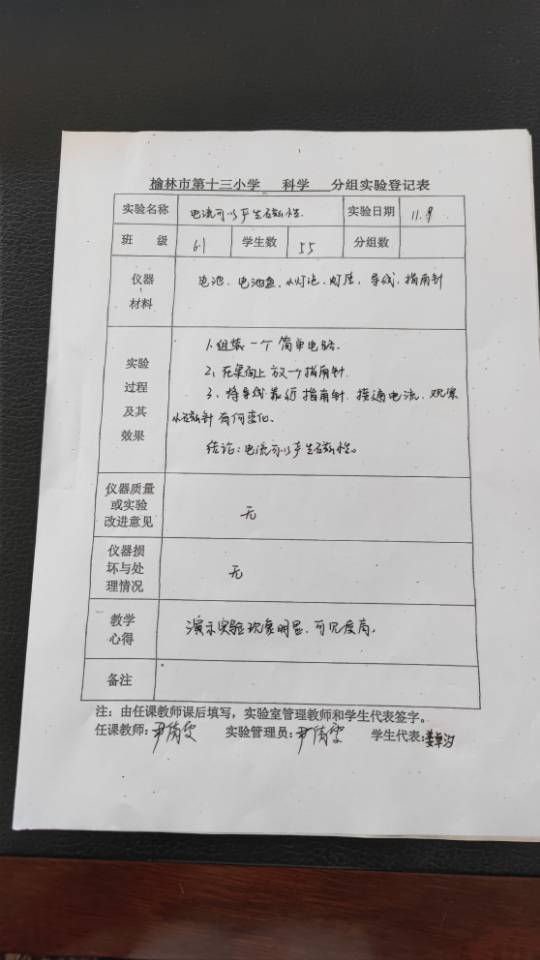 榆林市第十三小学 科学 分组实验登记表
实验名称 电流可以产生磁性. 实验日期 11.9
班 级 6.1 学生数 55 分组数
仪器 电池、电池盒、小灯泡、灯座、导线、指南针
材料
实验 1.组装一个简单电路.
过程 2、在桌面上放一个指南针.
及其 3、将导线靠近指南针.接通电流.观察
效果 小磁针有何变化.
结论:电流可以产生磁性。
仪器质量
或实验 无
改进意见
仪器损
坏与处 无
理情况
教学 演示实验现象明显.可见度高.
心得
备注
注:由任课教师课后填写,实验室管理教师和学生代表签字。
任课教师: 实验管理员: 学生代表: